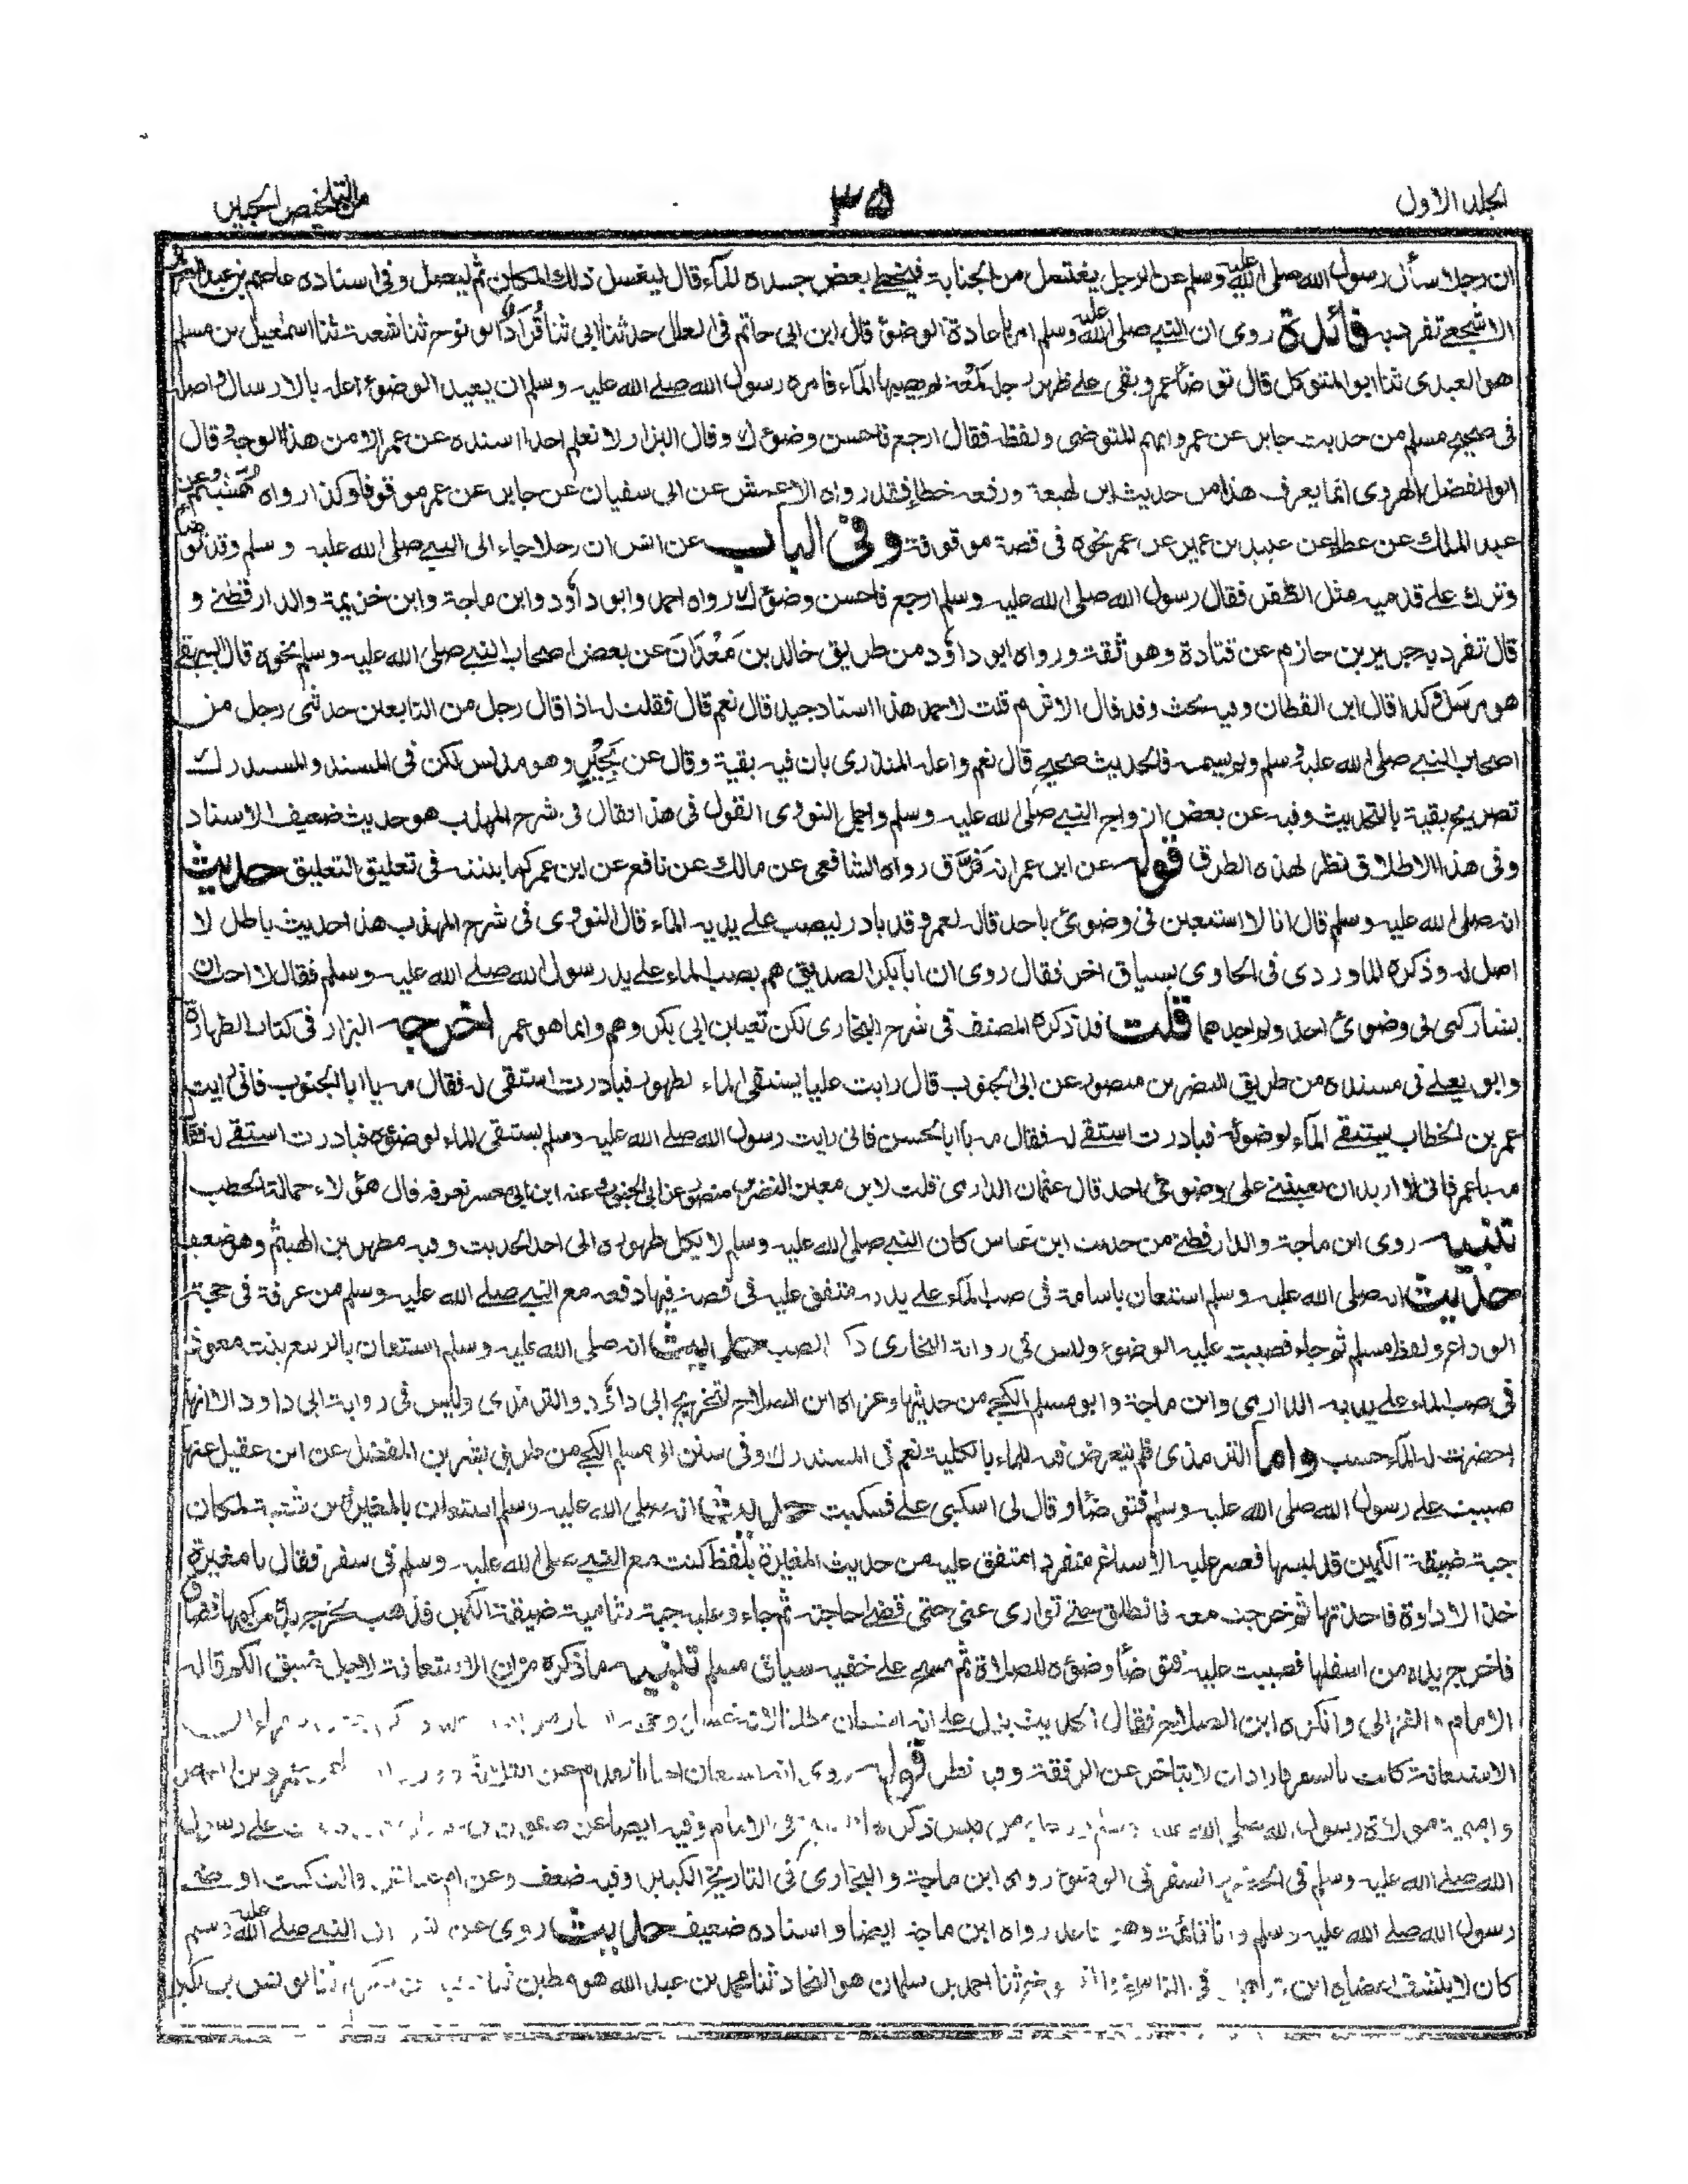 الجلد الاول
٣٥
من التلخيص الحبير
ان رجلا سأل رسول الله صلى الله عليه وسلم عن الرجل يغتسل من الجنابة فيخطى بعض جسده الماء قال ليغسل ذلك المكان ثم ليصل وفى اسناده عاصم بن عبد العزيز
الاشجعى تفرد به فائدة روى ان النبى صلى الله عليه وسلم امر باعادة الوضوء قال ابن ابى حاتم فى العلل حدثنا ابى ثنا قُرَادٌ ابو نوح ثنا شعبة ثنا اسمعيل بن مسلم
هو العبدى ثنا ابو المتوكل قال توضأ عمر وبقى على ظهر رجله لمعة لم يصبها الماء فامره رسول الله صلى الله عليه وسلم ان يعيد الوضوء اعله بالارسال واصله
فى صحيح مسلم من حديث جابر عن عمر وابهم المتوضى ولفظه فقال ارجع فاحسن وضوءك وقال البزار لا نعلم احدا اسنده عن عمر الا من هذا الوجه وقال
ابو الفضل الهروى انما يعرف هذا من حديث ابن لهيعة ورفعه خطأ فقد رواه الاعمش عن ابى سفيان عن جابر عن عمر موقوفا وكذا رواه هُشَيْم عن
عبد الملك عن عطاء عن عبيد بن عمير عن عمر نحوه فى قصة موقوفة وفى الباب عن انس ان رجلا جاء الى النبى صلى الله عليه وسلم وقد توضأ
وترك على قدميه مثل الظفر فقال رسول الله صلى الله عليه وسلم ارجع فاحسن وضوءك رواه احمد وابو داؤد وابن ماجة وابن خزيمة والدارقطنى و
قال تفرد به جرير بن حازم عن قتادة وهو ثقة ورواه ابو داؤد من طريق خالد بن مَعْدَانَ عن بعض اصحاب النبى صلى الله عليه وسلم نحوه قال البيهقى
هو مرسل وكذا قال ابن القطان وفيه بحث وقد قال الاثرم قلت لاحمد هذا اسناد جيد قال نعم قال فقلت له اذا قال رجل من التابعين حدثنى رجل من
اصحاب النبى صلى الله عليه وسلم ولم يسمه فالحديث صحيح قال نعم واعله المنذرى بان فيه بقية وقال عن بَحِيْرٍ وهو مدلس لكن فى المسند والمستدرك
تصريح بقية بالتحديث وفيه عن بعض ازواج النبى صلى الله عليه وسلم واجمل النووى القول فى هذا فقال فى شرح المهذب هو حديث ضعيف الاسناد
وفى هذا الاطلاق نظر لهذه الطرق قوله عن ابن عمر انه فَرَّق رواه الشافعى عن مالك عن نافع عن ابن عمر كما بينته فى تعليق التعليق حديث
انه صلى الله عليه وسلم قال انا لا استعين فى وضوئى باحد قاله لعمر وقد بادر ليصب على يديه الماء قال النووى فى شرح المهذب هذا حديث باطل لا
اصل له وذكره الماوردى فى الحاوى بسياق اخر فقال روى ان ابا بكر الصديق هم بصب الماء على يد رسول الله صلى الله عليه وسلم فقال لا احب ان
يشاركنى فى وضوئى احد ولم اجدهما قلت قد ذكره المصنف فى شرح البخارى لكن تعيين ابى بكر وهم وانما هو عمر اخرجه البزار فى كتاب الطهارة
وابو يعلى فى مسنده من طريق النضر بن منصور عن ابى الجنوب قال رايت عليا يستقى الماء لطهوره فبادرت استقى له فقال مه يا ابا الجنوب فانى رايت
عمر بن الخطاب يستقى الماء لوضوئه فبادرت استقى له فقال مه يا ابا الحسن فانى رايت رسول الله صلى الله عليه وسلم يستقى الماء لوضوئه فبادرت استقى له فقال
مه يا عمر فانى لا اريد ان يعيننى على وضوئى احد قال عثمان الدارمى قلت لابن معين النضر بن منصور عن ابى الجنوب وعنه ابن ابى معشر تعرفه قال هؤلاء حمالة الحطب
تنبيه روى ابن ماجة والدارقطنى من حديث ابن عباس كان النبى صلى الله عليه وسلم لا يكل طهوره الى احد الحديث وفيه مطهر بن الهيثم وهو ضعيف
حديث انه صلى الله عليه وسلم استعان باسامة فى صب الماء على يديه متفق عليه فى قصة فيها دفعه مع النبى صلى الله عليه وسلم من عرفة فى حجة
الوداع ولفظ مسلم ثم جاء فصببت عليه الوضوء وليس فى رواية البخارى ذكر الصب حديث انه صلى الله عليه وسلم استعان بالربيع بنت معوذ
فى صب الماء على يديه الدارمى وابن ماجة وابو مسلم الكجى من حديثها وعزاه ابن الصلاح لتخريج ابى داؤد والترمذى وليس فى رواية ابى داود الا انها
احضرت له الماء حسب واما الترمذى فلم يتعرض فيه للماء بالكلية نعم فى المستدرك وفى سنن ابى مسلم الكجى من طريق بشر بن المفضل عن ابن عقيل عنها
صببت على رسول الله صلى الله عليه وسلم فتوضأ وقال لى اسكبى على فسكبت حديث انه صلى الله عليه وسلم استعان بالمغيرة بن شعبة لمكان
جبة ضيقة الكمين قد لبسها فعسر عليه الاسباغ منفردا متفق عليه من حديث المغيرة بلفظ كنت مع النبى صلى الله عليه وسلم فى سفر فقال يا مغيرة
خذ الاداوة فاخذتها ثم خرجت معه فانطلق حتى توارى عنى حتى قضى حاجته ثم جاء وعليه جبة شامية ضيقة الكمين فذهب يخرج يده من كمها فضاق
فاخرج يده من اسفلها فصببت عليه فتوضأ وضوءه للصلاة ثم مسح على خفيه سياق مسلم تنبيه ما ذكره من ان الاستعانة لاجل ضيق الكم قاله
الامام والغزالى وانكره ابن الصلاح فقال الحديث يدل على انه استعان مطلقا لانه غسل وجهه
الاستعانة كانت بالسفر فاراد ان لا يتاخر عن الرفقة وفيه نظر قوله روى انه استعان احيانا
واميمة مولاة رسول الله صلى الله عليه وسلم ذكره فى الامام وفيه ايضا عن صفوان بن على رسول
الله صلى الله عليه وسلم فى الحضر والسفر فى الوضوء رواه ابن ماجة والبخارى فى التاريخ الكبير وفيه ضعف وعن ام عياش قالت كنت اوضى
رسول الله صلى الله عليه وسلم وانا قائمة وهو قاعد رواه ابن ماجة ايضا واسناده ضعيف حديث روى عن انس ان النبى صلى الله عليه وسلم
كان لا ينشف اعضاءه ابن شاهين فى الناسخ والمنسوخ ثنا احمد بن سلمان هو النجاد ثنا محمد بن عبد الله هو مطين ثنا ثنا يونس بن بكير